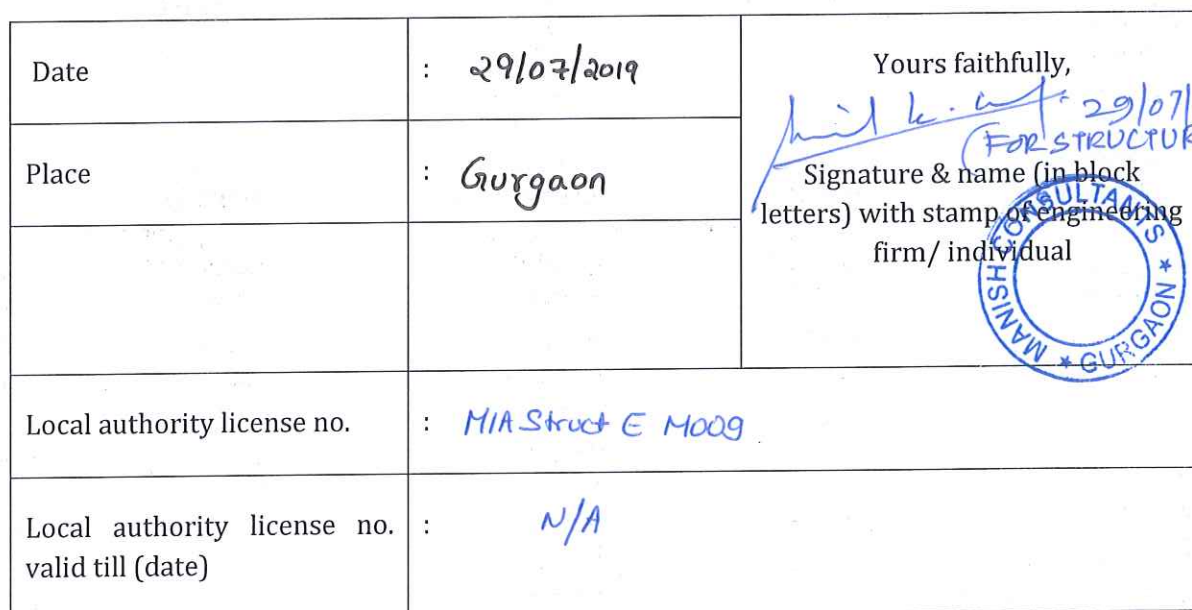 Date : 29/07/2019
Yours faithfully,
29/07/
(FOR STRUCTUR
Place : Gurgaon
Signature & name (in block
letters) with stamp of engineering
firm/ individual
MANISH CONSULTANTS * GURGAON *
Local authority license no. : MIA Struct E M009
Local authority license no. : N/A
valid till (date)